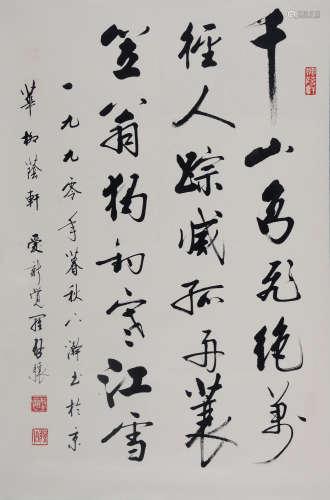 千山鳥飛絕萬
徑人踪滅孤舟蓑
笠翁獨釣寒江雪
一九九零年暮秋八游书於京
華柳蔭軒 愛新覺羅啟驤